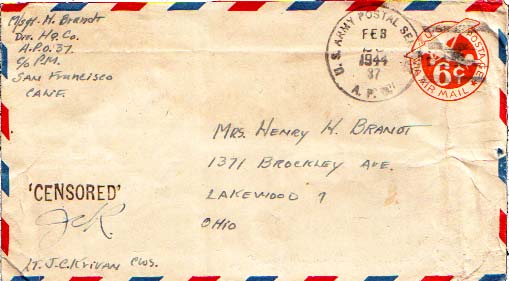 M/Sgt. H. Brandt
Div. Hq. Co.
A.P.O. 37.
c/o P.M.
San Francisco
CALIF.
U.S. ARMY POSTAL SE
FEB
1944
37
A.P.
U.S. POSTAGE
6¢
VIA AIR MAIL
Mrs. Henry H. Brandt
1371 Brockley Ave.
Lakewood 7
Ohio
'CENSORED'
JCK.
Lt. J.C. Krivan CWS.